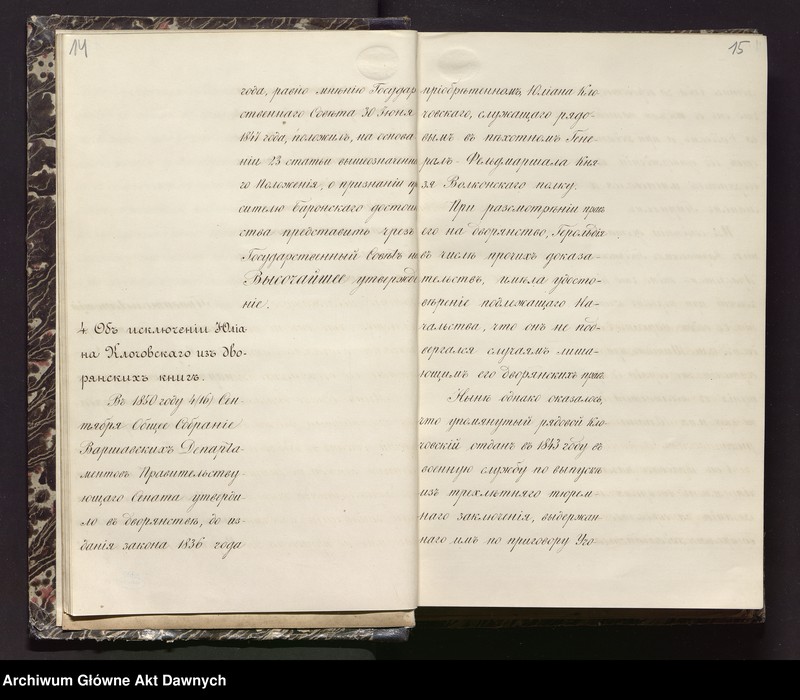 14
года, равно мнѣнію Государ
ственнаго Совѣта 30 Іюня
1847 года, положилъ, на основа
ніи 23 статьи вышеозначенна
го Положенія, о признаніи пр
сителю баронскаго достоин
ства представить чрезъ
Государственный Совѣтъ на
Высочайшее утвержде
ніе.
4. Объ исключеніи Юліа
на Клочовскаго изъ дво-
рянскихъ книгъ.
Въ 1850 году 4/16) Сен
тября Общее Собраніе
Варшавскихъ Департа-
ментовъ Правительству
ющаго Сената утверди-
ло въ дворянствѣ, до из-
данія закона 1836 года
15
пріобрѣтенномъ, Юліана Кло
човскаго, служащаго рядо-
вымъ въ пѣхотномъ Гене-
ралъ-Фельдмаршала Кня
зя Волконскаго полку.
При разсмотрѣніи правъ
его на дворянство, Герольдія
въ числѣ прочихъ доказа-
тельствъ, имѣла удосто-
вѣреніе подлежащаго На-
чальства, что онъ не под-
вергался случаямъ лиша-
ющимъ его дворянскихъ правъ.
Нынѣ однако оказалось,
что упомянутый рядовой Кло
човскій отданъ въ 1843 году въ
военную службу по выпускѣ
изъ трехлѣтняго тюрем-
наго заключенія, выдержан
наго имъ по приговору Уго
Archiwum Główne Akt Dawnych